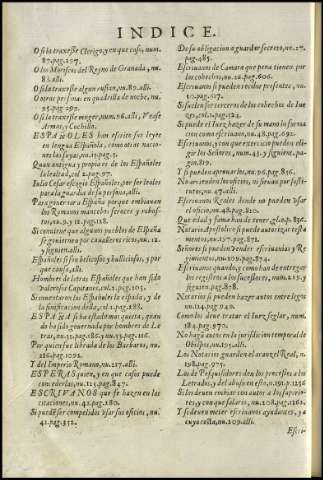 INDICE.
O si la traxesse Clerigo, y en que caso, num.
87.pag.297.
O los Moriscos del Reyno de Granada, nu.
88.alli.
O si la traxesse algun rufian, nu.89.alli.
O otras personas en quadrilla de noche, nu.
95.pag.299.
O si la traxesse muger, num.96.alli, Vease
Armas, y Cuchillo.
ESPAÑOLES han escrito sus leyes
en lengua Española, como otras nacio-
nes las suyas, nu.13.pag.3.
Quan antigua y propia es de los Españoles
la lealtad, col.2.pag.97.
Iulio Cesar escogio Españoles, por ser leales
para la guardia de su persona, alli.
Para governar a España porque embiavan
los Romanos mancebos feroces y rubos-
tos, nu.9.y 12.pag.118.
Si conviene que algunos pueblos de España
se goviernen por cavalleros ricos, nu.12.
y siguien.alli.
Españoles si son belicosos y bulliciosos, y por
que causa, alli.
Hombres de letras Españoles que han sido
valerosos Capitanes, col.2.pag.103.
Si inventaron los Españoles la espada, y de
la sinificacion della, col.2.pag.288.
ESPAÑA si ha estado mas quieta, quan
do ha sido governada por hombres de Le-
tras, nu.35.pag.186.y nu.33.pag.116.
Por quien fue librada de los Barbaros, nu.
216.pag.1092.
Y del Imperio Romano, nu.217.alli.
ESPERAS quien, y en que casos puede
concederlas, nu.125.pag.847.
ESCRIVANOS que se hagan en las
citaciones, nu.42.pag.180.
Si puede ser compelidos usar sus oficios, nu.
41.pag.352.
De su obligacion a guardar secreto, nu.27.
pag.485.
Escrivanos de Camara que pena tienen por
los cohechos, nu.26.pag.606.
Escrivanos si pueden recebir presentes, nu.
92.pag.617.
Si suelen ser terceros de los cohechos de Iue
zes, col.2.pag.124.
Si puede el Iuez hazer de su mano la suma-
cion como escrivano, nu.48.pag.692.
Escrivanos, y con que exercicio pueden eli-
gir los Señores, num.43.y siguiente, pa-
gin.819.
Y si pueden apremiarlos, nu.96.pag.836.
No arrienden los oficios, ni sirvan por susti-
tutos, nu.47.alli.
Escrivanos Reales donde no pueden usar
el oficio, nu.48.pag.820.
Que edad y fama han de tener, glo.o.pag.836.
Notario Apostolico si puede autorizar testa
mento, nu.277.pag.872.
Señores si pueden vender escrivanias y Re-
gimientos, nu.209.pag.874.
Escrivanos quando, y como han de entregar
los registros a los sucessores, num.213. y
siguien.pag.878.
Notarios si pueden hazer autos entre legos
nu.114.pag.940.
Como los deve tratar el Iuez seglar, num.
184.pag.970.
No haga autos en la jurisdicion temporal de
Obispos, nu.191.alli.
Los Notarios guarden el aranzel Real, n.
198.pag.975.
Los de Pesquisidores den los processos a los
Letrados, y del abuso en esto, n.151.p.1256
Si los deven embiar con autos a los supe-
riores, y con que salarios, nu.208.pag.1262.
Y si deven meter escrivanos ayudantes, y a
cuya costa, nu.209.alli.
Escri-